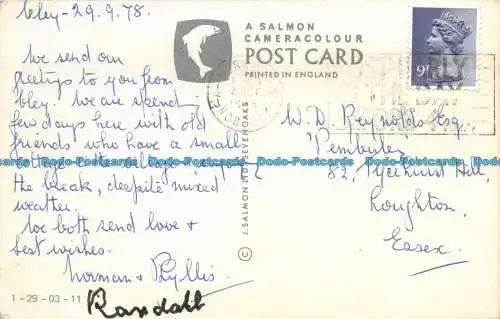 Cley - 29.9.78.
We send our
greetings to you from
Cley. We are spending
few days here with old
friends who have a small
cottage in the village. Enjoying
the break, despite mixed
weather.
We both send love &
best wishes.
Norman & Phyllis
Randall
1-29-03-11
A SALMON
CAMERACOLOUR
POST CARD
PRINTED IN ENGLAND
J. SALMON LTD. SEVENOAKS ©
9P
W. D. Reynolds Esq.,
Pembules
82, Pyecroft Hill,
Loughton,
Essex.
Dodo-Postcards Dodo-Postcards Dodo-Postcards Dodo-Postcards